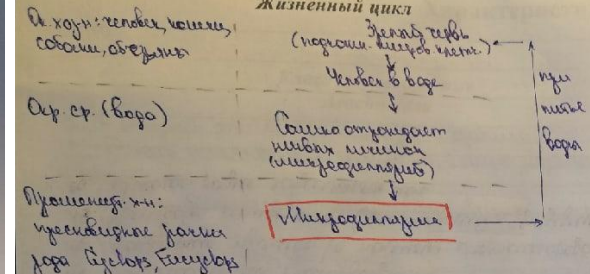 Жизненный цикл
Ок. хоз-н: человек, кошки,
собаки, обезьяны
Зрелый червь
(подкожн. жиров. клетч.)
Человек в воде
Окр. ср. (вода)
Самка отрождает
живых личинок
(микрофилярий)
при
питье
воды
Промежут. х-н:
пресноводные рачки
рода Cyclops, Eucyclops
Микрофилярии